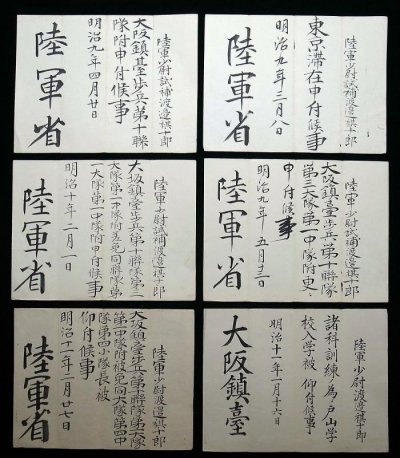 陸軍少尉試補渡邉祺十郎
東京滞在申付候事
明治九年三月八日
陸軍省
陸軍少尉試補渡邉祺十郎
大阪鎮臺歩兵第十聯
隊附申付候事
明治九年四月廿日
陸軍省
陸軍少尉試補渡邉祺十郎
大阪鎮臺歩兵第十聯隊
第三大隊第一中隊附更ニ
申付候事
明治九年五月十三日
陸軍省
陸軍少尉試補渡邉祺十郎
大阪鎮臺歩兵第十聯隊第二
大隊第一中隊附差免同聯隊第
一大隊第一中隊附申付候事
明治十年二月一日
陸軍省
陸軍少尉渡邉祺十郎
諸科訓練ノ為メ戸山学
校入学被 仰付候事
明治十一年一月十六日
大阪鎮臺
陸軍少尉渡邉祺十郎
大阪鎮臺歩兵第十聯隊第一大隊
第一中隊附被免同大隊第四中
隊第四小隊長被
仰付候事
明治十一年二月廿七日
陸軍省